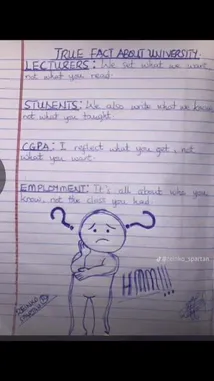 TRUE FACT ABOUT UNIVERSITY
LECTURERS: We set what we want
not what you read.
STUDENTS: We also write what we know
not what you taught.
CGPA: I reflect what you get, not
what you want.
EMPLOYMENT: It's all about who you
know, not the class you had.
? ?
HMM!!!